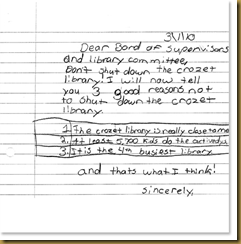 3/1/10
Dear Bord of Supervisors
and library committee,
Don't shut down the crozet
library! I will now tell
you 3 good reasons not
to shut down the crozet
library.
1. The crozet library is really close to me
2. At least 5,700 kids do the
3. It is the 4th busiest library
and thats what I think!
Sincerely,